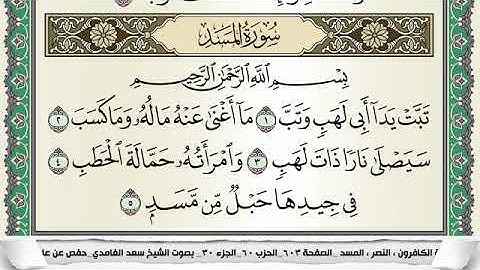 سُورَةُ المَسَدِ
بِسْمِ اللَّهِ الرَّحْمَٰنِ الرَّحِيمِ
تَبَّتْ يَدَا أَبِي لَهَبٍ وَتَبَّ ١ مَا أَغْنَىٰ عَنْهُ مَالُهُ وَمَا كَسَبَ ٢
سَيَصْلَىٰ نَارًا ذَاتَ لَهَبٍ ٣ وَامْرَأَتُهُ حَمَّالَةَ الْحَطَبِ ٤
فِي جِيدِهَا حَبْلٌ مِّن مَّسَدٍ ٥
الكافرون ، النصر ، المسد _ الصفحة ٦٠٣_ الحزب ٦٠_ الجزء ٣٠_ بصوت الشيخ سعد الغامدي_ حفص عن